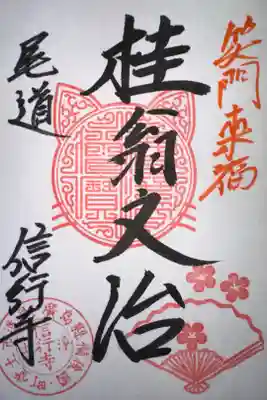 笑門来福
桂翁文治
尾道
信行寺
信行寺